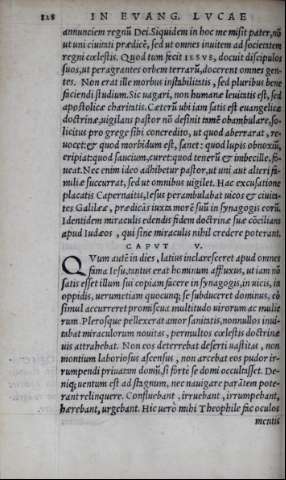 128 IN EVANG. LVCAE
annunciem regnũ Dei. Siquidem in hoc me misit pater, nõ
ut uni ciuitati prædicẽ, sed ut omnes inuitem ad societatem
regni cœlestis. Quod tum fecit IESVS, docuit discipulos
suos, ut peragrantes orbem terrarũ, docerent omnes gen-
tes. Non erat ille morbus instabilitatis, sed pluribus bene
faciendi studium. Sic uagari, non humanæ leuitatis est, sed
apostolicæ charitatis. Cæterũ ubi iam satis est euangelicæ
doctrinæ, uigilans pastor nõ desinit tamẽ obambulare, so-
licitus pro grege sibi concredito, ut quod aberrarat, re-
uocet: & quod morbidum est, sanet: quod lupis obnoxiũ,
eripiat: quod saucium, curet: quod tenerũ & imbecille, fo-
ueat. Nec enim ideo adhibetur pastor, ut uni aut alteri fa-
miliæ succurrat, sed ut omnibus uigilet. Hac excusatione
placatis Capernaitis, Iesus perambulabat uicos & ciuita-
tes Galileæ, prædicãs iuxta morẽ suũ in synagogis eorũ.
Identidem miraculis edendis fidem doctrinæ suæ cõcilians
apud Iudæos, qui sine miraculis nihil credere poterant.
CAPVT V.
QVum autẽ in dies, latius inclaresceret apud omnes
fama Iesu, tantus erat hominum affluxus, ut iam nõ
satis esset illum sui copiam facere in synagogis, in uicis, in
oppidis, uerumetiam quocunq; se subduceret dominus, cõ
simul accurreret promiscua multitudo uirorum ac mulie
rum. Plerosque pellexerat amor sanitatis, nonnullos inui-
tabat miraculorum nouitas, permultos cœlestis doctrinæ
uis attrahebat. Non eos deterrebat deserti uastitas, non
montium laboriosus ascensus, non arcebat eos pudor ir-
rumpendi priuatam domũ, si fortè se domi occultisset. De-
niq; uentum est ad stagnum, nec nauigare paratẽm pote-
rant relinquere. Confluebant, irruebant, irrumpebant,
hærebant, urgebant. Hic uero mihi Theophile fac oculos
mentis